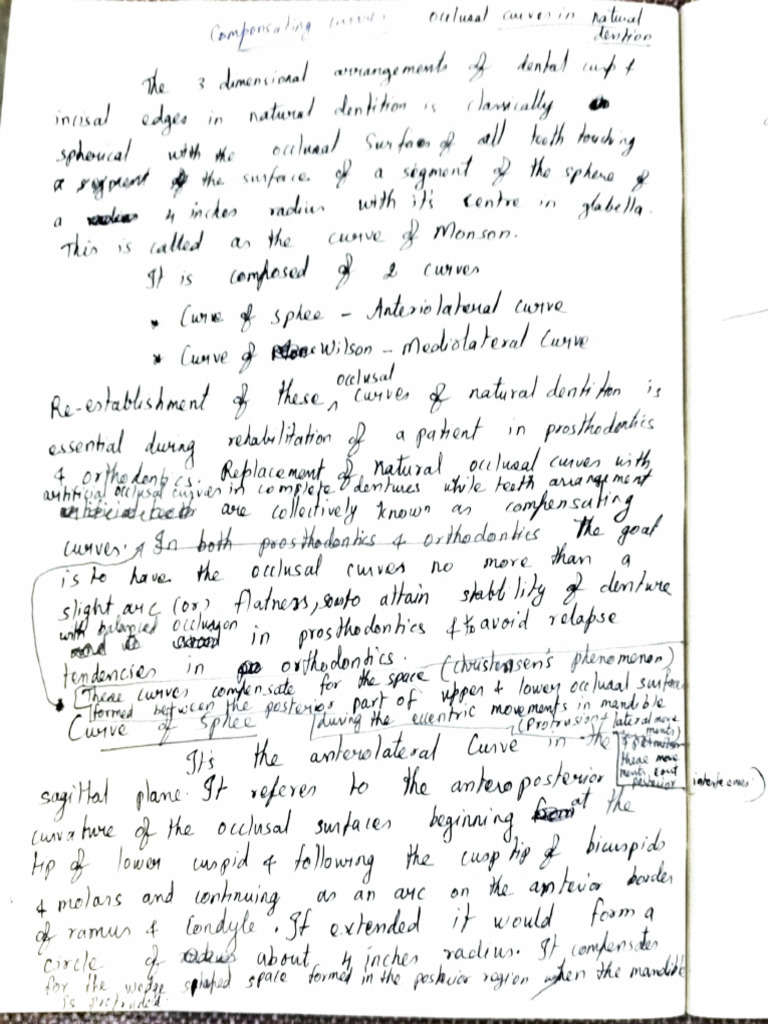 Compensating curves occlusal curves in natural
dention
The 3 dimensional arrangements of dental cusp &
incisal edges in natural dentition is classically
spherical with the occlusal surfaces of all teeth touching
the surface of a segment of the sphere of
a 4 inches radius with it's centre in glabella.
This is called as the curve of Monson.
It is composed of 2 curves
* Curve of sphee - Anteriolateral curve
* Curve of Wilson - Mediolateral Curve
Re-establishment of these occlusal curves of natural dentition is
essential during rehabilitation of a patient in prosthodontics
& orthodontics. Replacement of natural occlusal curves with
artificial occlusal curves in complete dentures while teeth arrangement
are collectively known as compensating
curves. In both prosthodontics & orthodontics The goal
is to have the occlusal curves no more than a
slight arc (or) flatness, so to attain stability of denture
with balanced occlusion in prosthodontics & to avoid relapse
tendencies in orthodontics.
These curves compensate for the space (christensen's phenomenon)
formed between the posterior part of upper & lower occlusal surface
during the eccentric movements in mandible
(protrusion & lateral movements)
these movements
posterior interferences)
Curve of Sphee
It's the anterolateral Curve in the
sagittal plane. It referes to the anteroposterior
curvature of the occlusal surfaces beginning at the
tip of lower cuspid & following the cusp tip of bicuspids
& molars and continuing as an arc on the anterior border
of ramus & Condyle. If extended it would form a
circle of about 4 inches radius. It compensates
for the wedge shaped space formed in the posterior region when the mandible
is protruded.